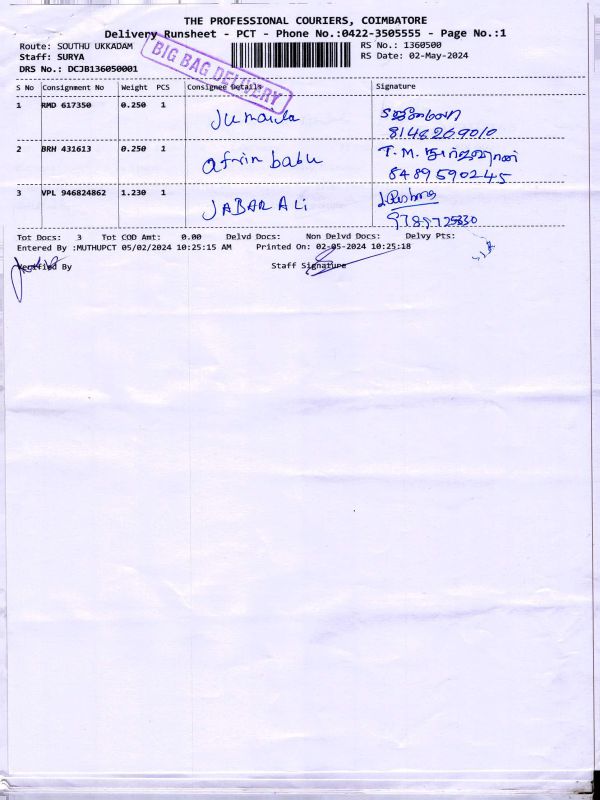 THE PROFESSIONAL COURIERS, COIMBATORE
Delivery Runsheet - PCT - Phone No.:0422-3505555 - Page No.:1
Route: SOUTHU UKKADAM RS No.: 1360500
Staff: SURYA RS Date: 02-May-2024
DRS No.: DCJB136050001
BIG BAG DELIVERY
S No Consignment No Weight PCS Consignee Details Signature
1 RMD 617350 0.250 1
8148269010
2 BRH 431613 0.250 1 afrin babu T.M.
8489590245
3 VPL 946824862 1.230 1 JABAR ALi
Tot Docs: 3 Tot COD Amt: 0.00 Delvd Docs: Non Delvd Docs: Delvy Pts:
Entered By :MUTHUPCT 05/02/2024 10:25:15 AM Printed On: 02-05-2024 10:25:18
Verified By Staff Signature